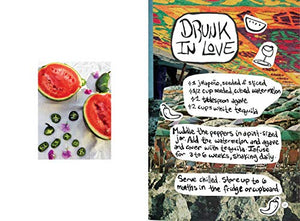 DRUNK
IN LOVE
1 jalapeño, seeded & sliced
1 1/2 cups seeded, cubed watermelon
1 tablespoon agave
2 cups white tequila
Muddle the peppers in a pint-sized
jar. Add the watermelon and agave
and cover with tequila. Infuse
for 3 to 6 weeks, shaking daily.
Serve chilled. Store up to 6
months in the fridge or cupboard